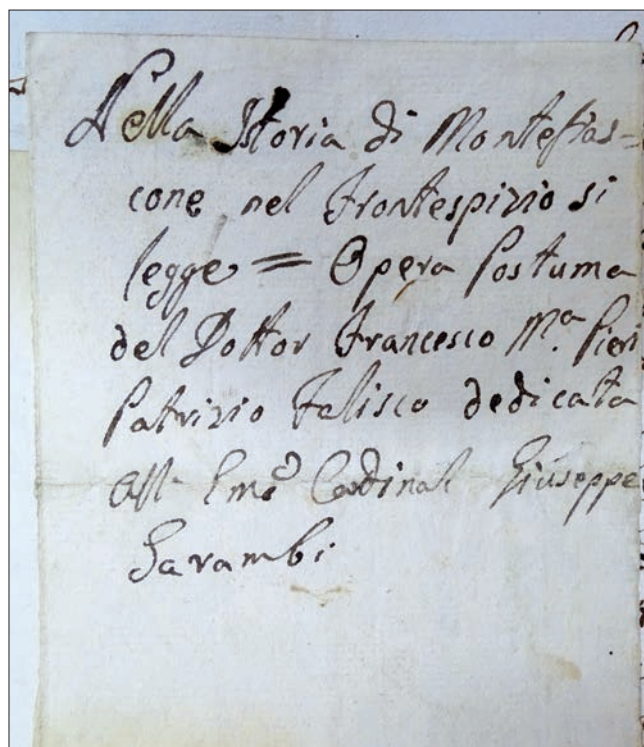 Nella Istoria di Montefias=
cone nel Frontespizio si
legge = Opera Postuma
del Dottor Francesco Mª. Pieri
Patrizio Falisco dedicata
All' Emo Cardinal Giuseppe
Garambi